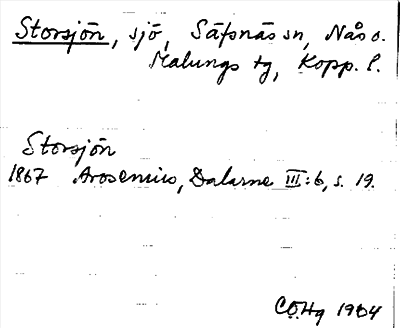 Storsjön, sjö, Säfsnäs sn, Nås o.
Malungs tg, Kopp. l.
Storsjön
1867 Arosenius, Dalarne III:6, s. 19.
CÖHg 1904